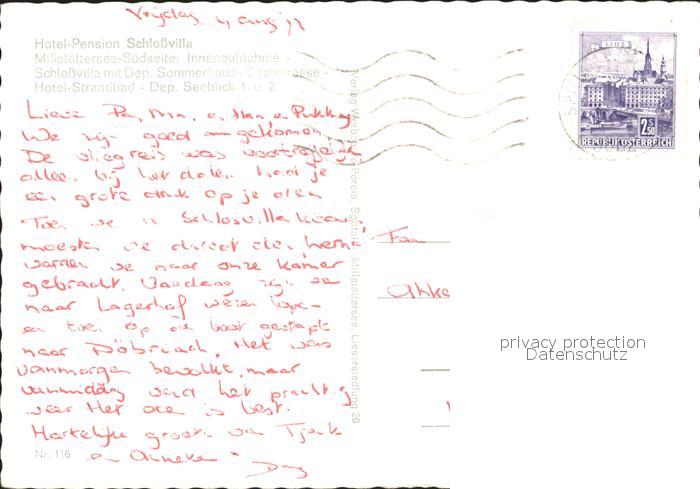 Vrijdag 4 aug
Hotel-Pension Schloßvilla
Millstättersee-Südseite: Innenaufnahme -
Schloßvilla mit Dep. Sommerhaus - Seeterrasse -
Hotel-Strandbad - Dep. Seeblick 1. u. 2.
LINZ
2S50
REPUBLIK ÖSTERREICH
Lieve Pa, Ma, en
We zijn goed aangekomen.
De vliegreis was voortreffelijk
alleen bij het dalen had je
een grote druk op je oren
Toen we in Schlossvilla kwamen
moesten we direct eten hierna
werden we naar onze kamer
gebracht. Vandaag zijn we
naar Lagerhof wezen lopen
en toen op de boot gestapt
naar Döbriach. Het was
vanmorgen bewolkt, maar
vanmiddag werd het prachtig
weer. Het eten is best.
Hartelijke groeten van Tjerk
en Anneke
Dag
Fam
Nr. 116
privacy protection
Datenschutz